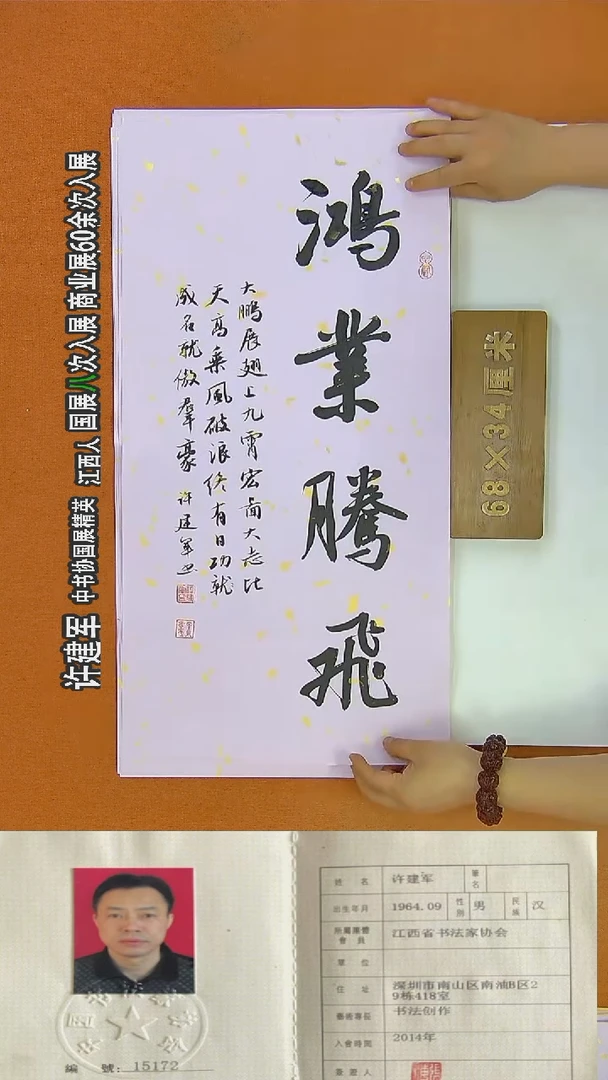 鴻業騰飛
大鹏展翅上九霄宏啚大志比
天高乘風破浪终有日功就
成名就傲羣豪 许建军书
68×34厘米
许建军 中书协国展精英 江西人 国展八次入展 商业展60余次入展
編 號：15172
姓 名 许建军 筆名
出生年月 1964.09 性别 男 民族 汉
所屬團體會員 江西省书法家协会
單 位
住 址 深圳市南山区南油B区2
9栋418室
藝術專長 书法创作
入會時間 2014年
簽證人